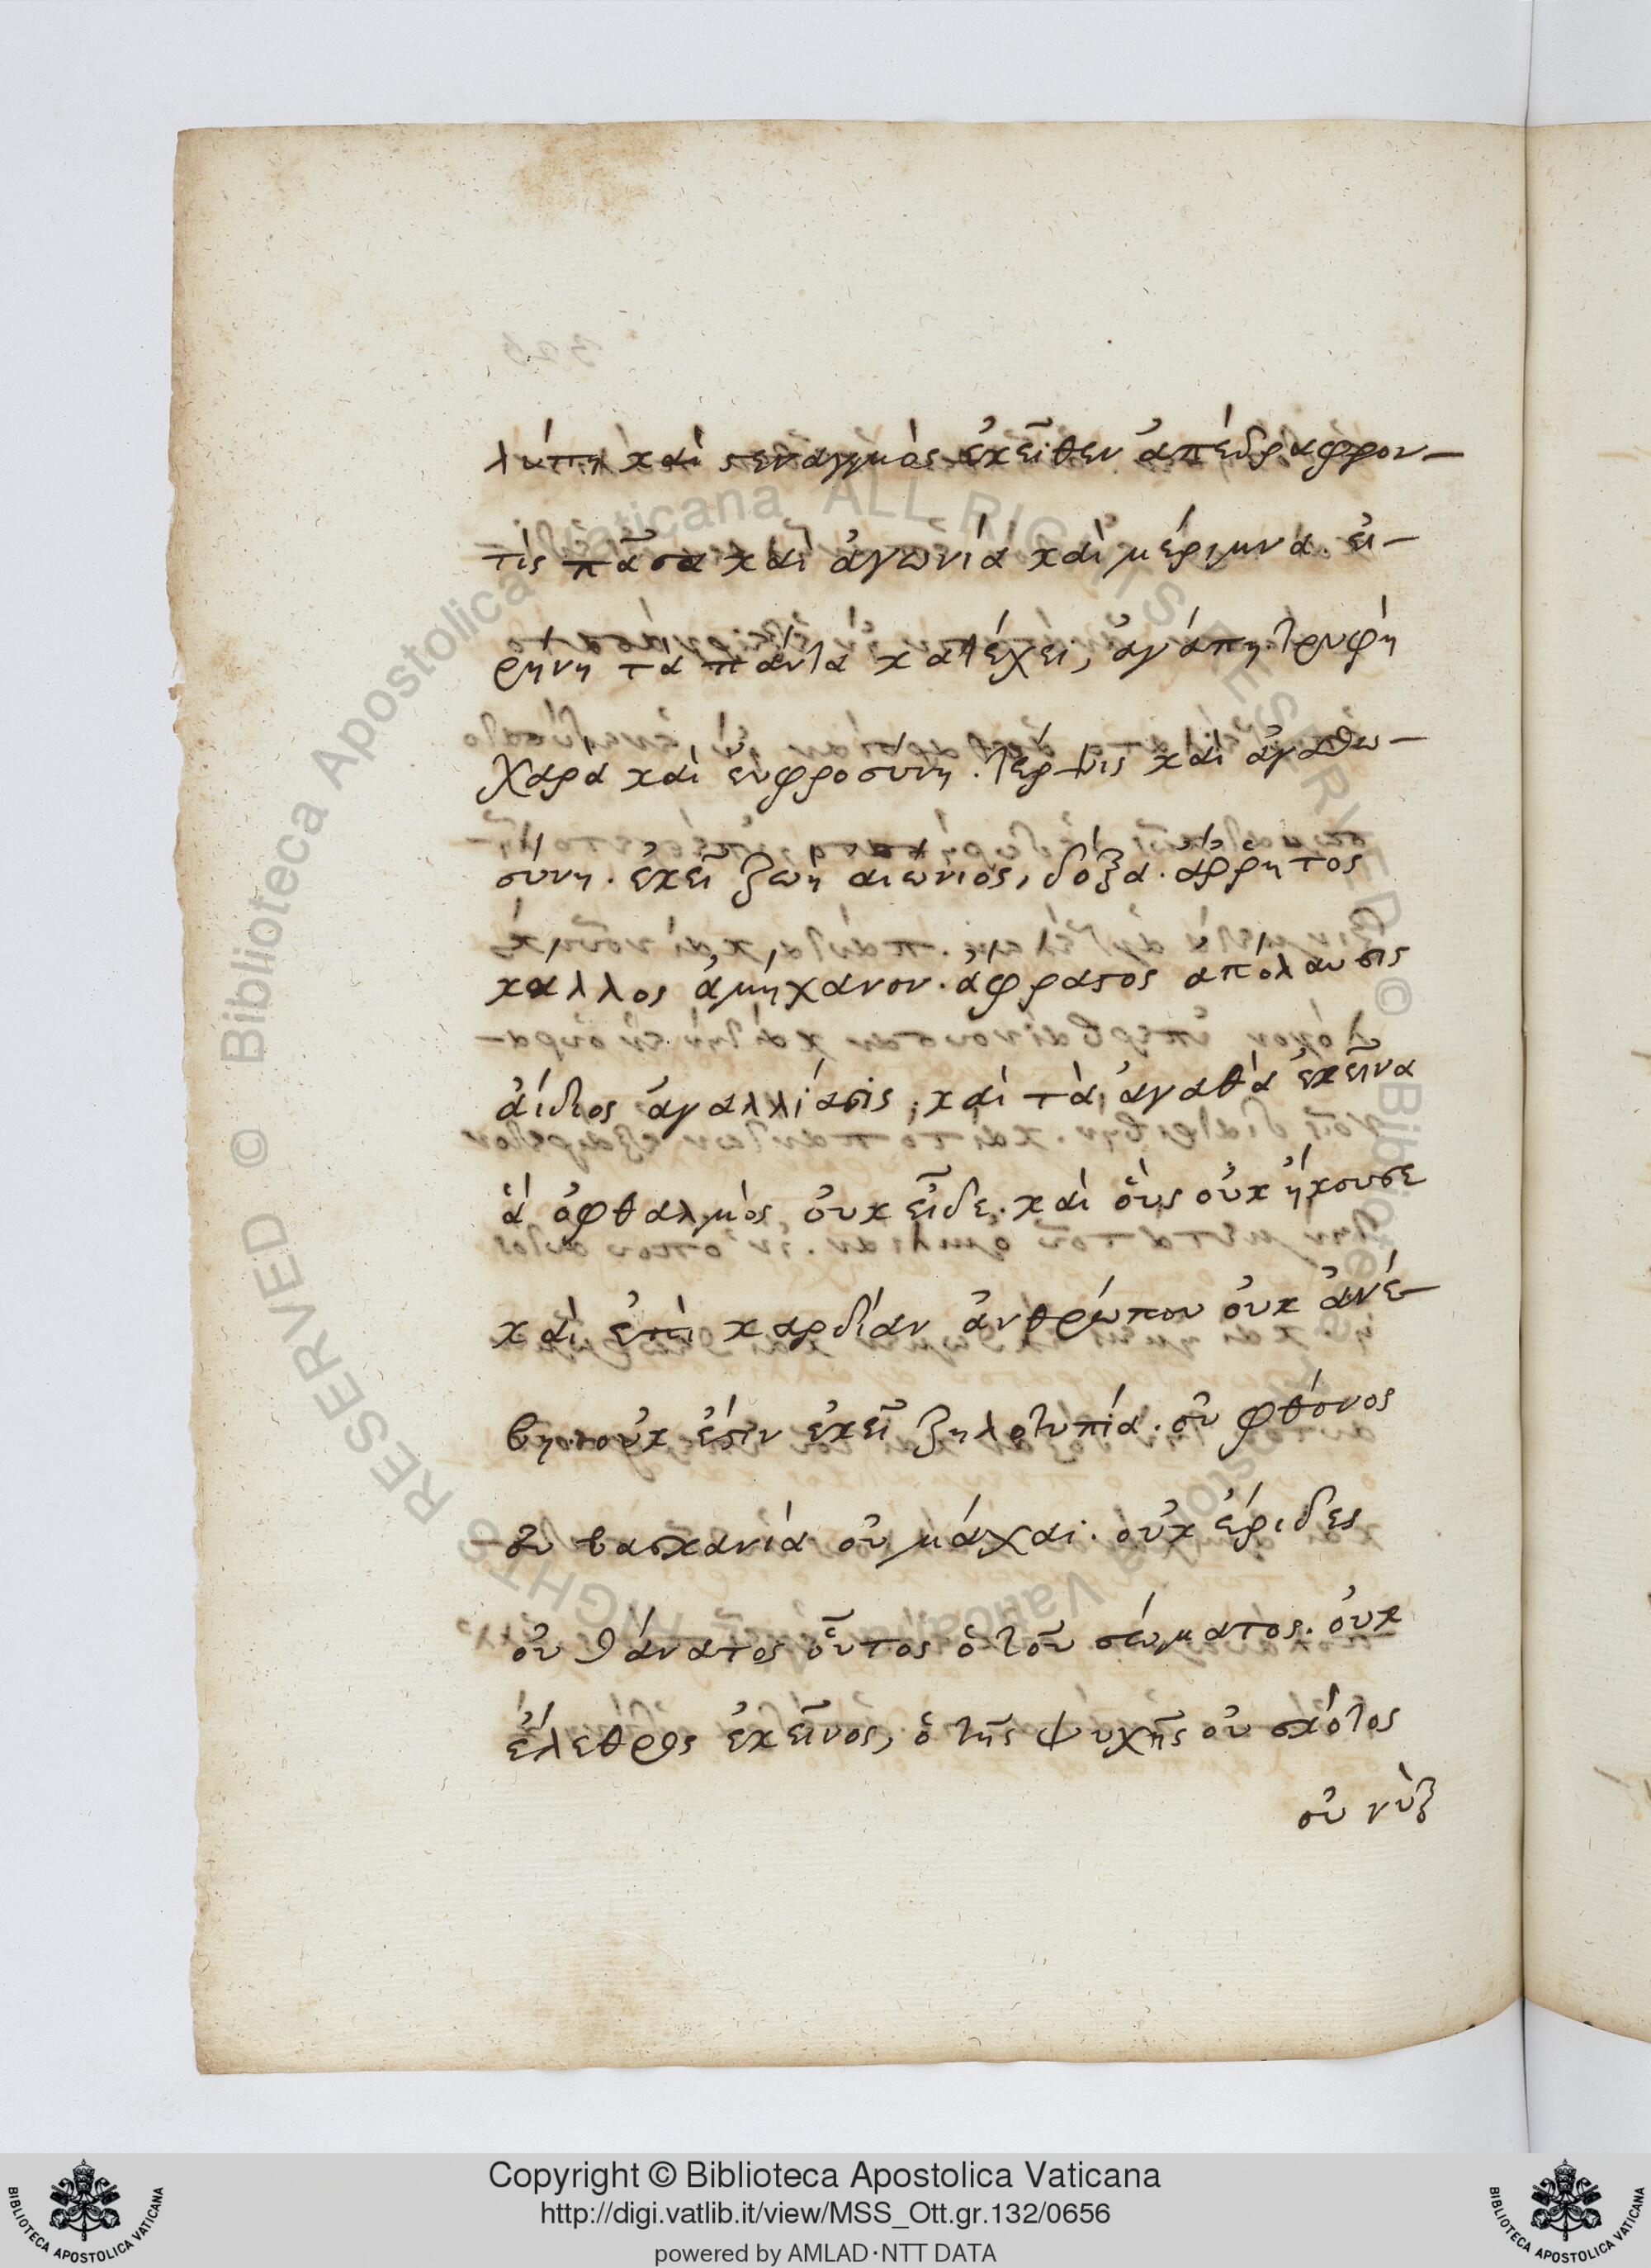 λύπη καὶ στεναγμὸς ἐκεῖθεν ἀπέδρα φρον-
τὶς πᾶσα καὶ ἀγωνία καὶ μέριμνα. εἰ-
ρήνη τὰ πάντα κατέχει, ἀγάπη. τρυφὴ
χαρὰ καὶ εὐφροσύνη. τέρψις καὶ ἀγαθω-
σύνη. ἐκεῖ ζωὴ αἰώνιος, δόξα. ἄῤῥητος
κάλλος ἀμήχανον. ἄφραστος ἀπόλαυσις
ἀίδιος ἀγαλλίασις. καὶ τὰ ἀγαθὰ ἐκεῖνα
ἃ ὀφθαλμὸς οὐκ εἶδε. καὶ οὖς οὐκ ἤκουσε
καὶ ἐπὶ καρδίαν ἀνθρώπου οὐκ ἀνέ-
βη. οὐκ ἔστιν ἐκεῖ ζηλοτυπία. οὐ φθόνος
οὐ βασκανία οὐ μάχαι. οὐκ ἔριδες
οὐ θάνατος οὗτος ὁ τοῦ σώματος. οὐκ
ἔλεθρος ἐκεῖνος, ὁ τῆς ψυχῆς οὐ σκότος
οὐ νὺξ
Copyright © Biblioteca Apostolica Vaticana
http://digi.vatlib.it/view/MSS_Ott.gr.132/0656
powered by AMLAD·NTT DATA
BIBLIOTECA APOSTOLICA VATICANA
BIBLIOTECA APOSTOLICA VATICANA